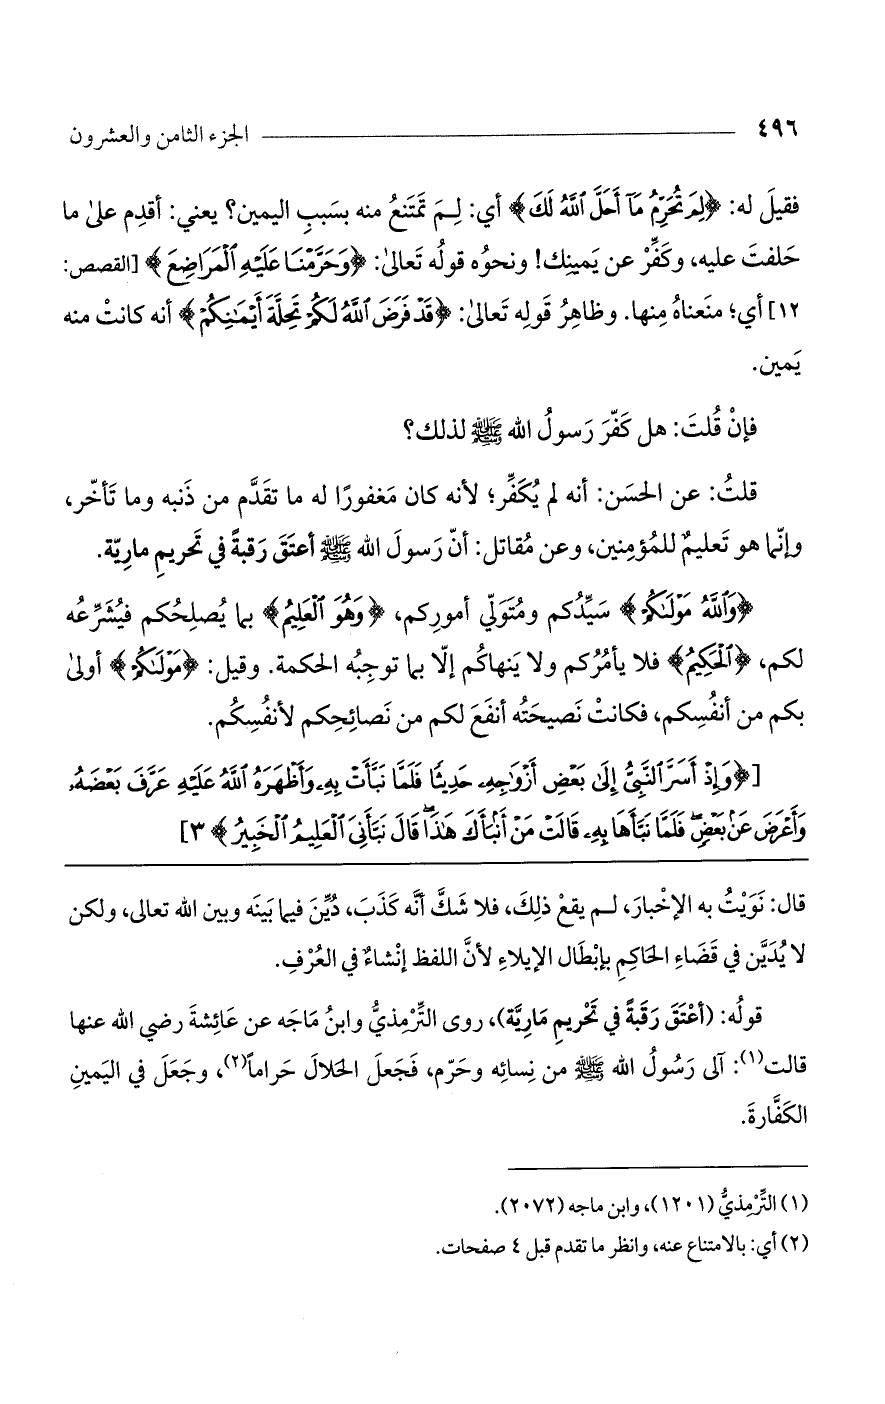 ٤٩٦ الجزء الثامن والعشرون
فقيلَ له: ﴿لِمَ تُحَرِّمُ مَآ أَحَلَّ ٱللَّهُ لَكَ﴾ أي: لِـمَ تمَتَنعُ منه بسَببِ اليمين؟ يعني: أقدِم علىٰ ما
حَلفتَ عليه، وكَفِّرْ عن يَمينِك! ونحوُه قولُه تَعالىٰ: ﴿وَحَرَّمْنَا عَلَيْهِ ٱلْمَرَاضِعَ﴾ [القصص:
١٢] أي؛ منَعناهُ مِنها. وظاهِرُ قَولِه تَعالىٰ: ﴿قَدْ فَرَضَ ٱللَّهُ لَكُمْ تَحِلَّةَ أَيْمَٰنِكُمْ﴾ أنه كانتْ منه
يَمين.
فإنْ قُلتَ: هل كَفّرَ رَسولُ الله ﷺ لذلك؟
قلتُ: عن الحسَن: أنه لم يُكَفِّر؛ لأنه كان مَغفورًا له ما تقَدَّم من ذَنبه وما تَأخّر،
وإنّما هو تَعليمٌ للمُؤمِنين، وعن مُقاتل: أنّ رَسولَ الله ﷺ أعتَقَ رَقبةً في تَحريمِ مارِيّة.
﴿وَٱللَّهُ مَوْلَىٰكُمْ﴾ سَيِّدُكم ومُتَولّي أمورِكم، ﴿وَهُوَ ٱلْعَلِيمُ﴾ بما يُصلِحُكم فيُشَرِّعُه
لكم، ﴿ٱلْحَكِيمُ﴾ فلا يأمُرُكم ولا يَنهاكُم إلّا بما توجِبُه الحكمة. وقيل: ﴿مَوْلَىٰكُمْ﴾ أولىٰ
بكم من أنفُسِكم، فكانتْ نَصيحَتُه أنفَعَ لكم من نَصائِحِكم لأنفُسِكُم.
[﴿وَإِذْ أَسَرَّ ٱلنَّبِىُّ إِلَىٰ بَعْضِ أَزْوَٰجِهِۦ حَدِيثًا فَلَمَّا نَبَّأَتْ بِهِۦ وَأَظْهَرَهُ ٱللَّهُ عَلَيْهِ عَرَّفَ بَعْضَهُۥ
وَأَعْرَضَ عَنۢ بَعْضٍ ۖ فَلَمَّا نَبَّأَهَا بِهِۦ قَالَتْ مَنْ أَنۢبَأَكَ هَٰذَا ۖ قَالَ نَبَّأَنِىَ ٱلْعَلِيمُ ٱلْخَبِيرُ﴾ ٣]
قال: نَوَيْتُ به الإخْبارَ، لـم يقعْ ذلِكَ، فلا شَكَّ أنَّه كَذَبَ، دُيِّنَ فيما بَينَه وبين الله تعالى، ولكن
لا يُدَيَّن في قَضَاءِ الحَاكِمِ بإبْطَال الإيلاءِ لأنَّ اللفظ إنْشاءٌ في العُرْفِ.
قولُه: (أعْتَقَ رَقَبَةً في تَحْريمِ مَارِيَّة)، روى التِّرْمذيُّ وابنُ مَاجَه عن عَائِشةَ رضي الله عنها
قالت(١): آلى رَسُولُ الله ﷺ من نِسائِه وحَرّم، فَجَعلَ الحَلالَ حَراماً(٢)، وجَعَلَ في اليَمينِ
الكَفَّارةَ.
(١) التِّرْمِذيُّ (١٢٠١)، وابن ماجه (٢٠٧٢).
(٢) أي: بالامتناع عنه، وانظر ما تقدم قبل ٤ صفحات.